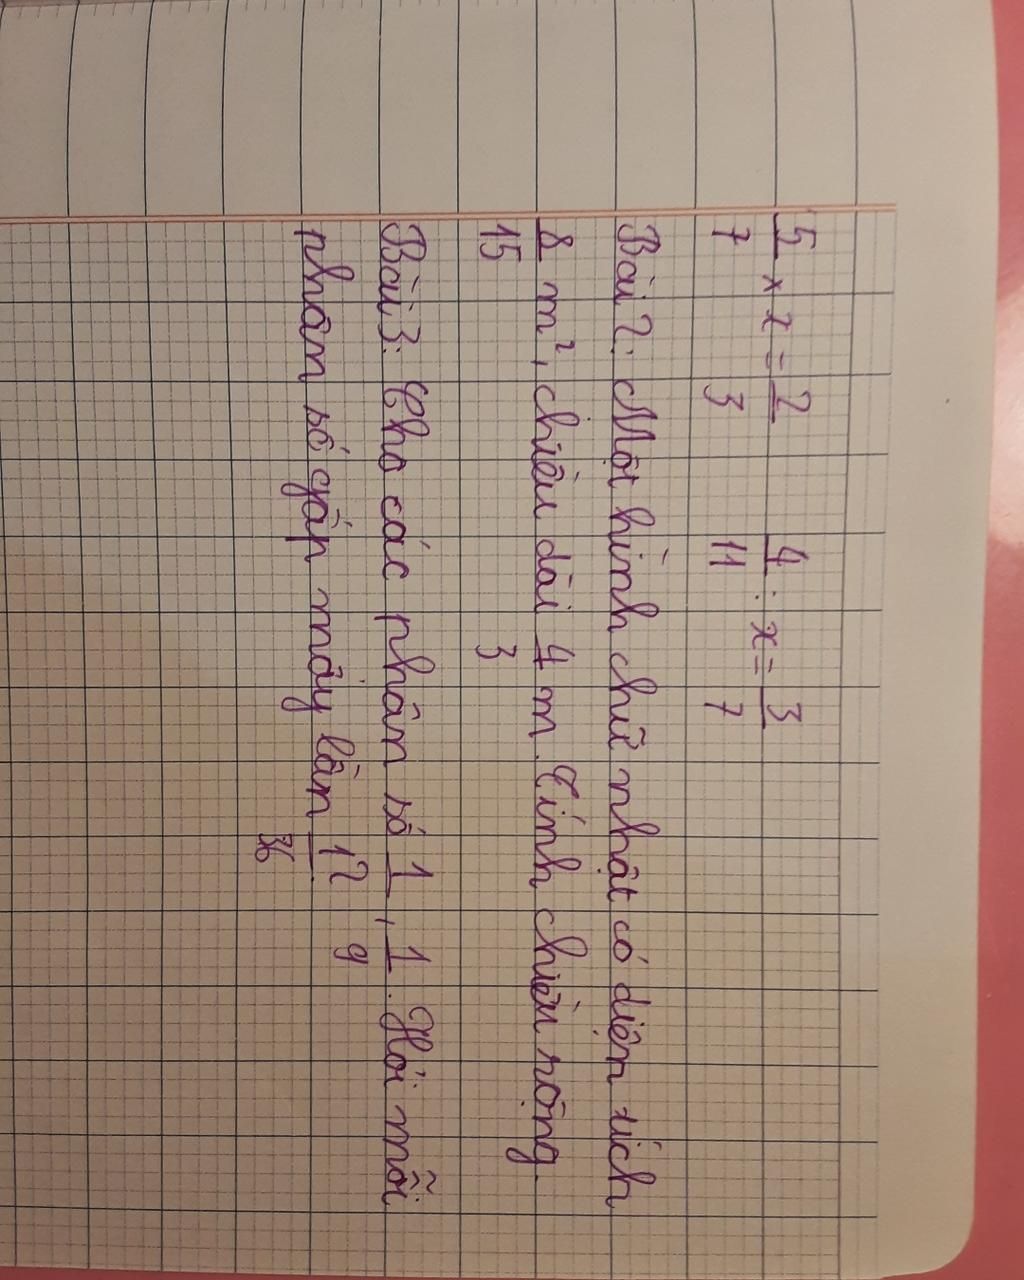 5/7 × x = 2/3 4/11 : x = 3/7
Bài 2: Một hình chữ nhật có diện tích
8/15 m², chiều dài 4/3 m. Tính chiều rộng.
Bài 3: Cho các phân số 1/12, 1/9. Hỏi mỗi
phân số gấp mấy lần 1/36.